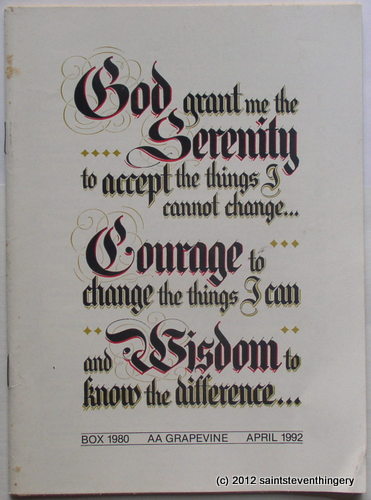 God grant me the
Serenity
to accept the things I
cannot change...
Courage to
change the things I can
and Wisdom to
know the difference...
BOX 1980 AA GRAPEVINE APRIL 1992
(c) 2012 saintsteventhingery